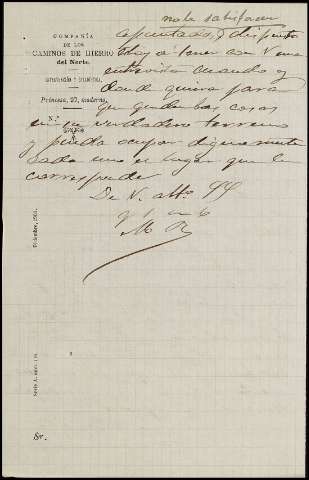 no le satisfacen
COMPAÑÍA
DE LOS
CAMINOS DE HIERRO
del Norte.
Princesa, 27, moderno.
N.º
apuntados, y dispuesto
estoy a tener con V una
entrevista cuando y
donde quiera para
que queden las cosas
en su verdadero terreno
y pueda ocupar dignamente
cada uno el lugar que le
corresponde.
De V. attº SS
q b s m
M R
Sr.